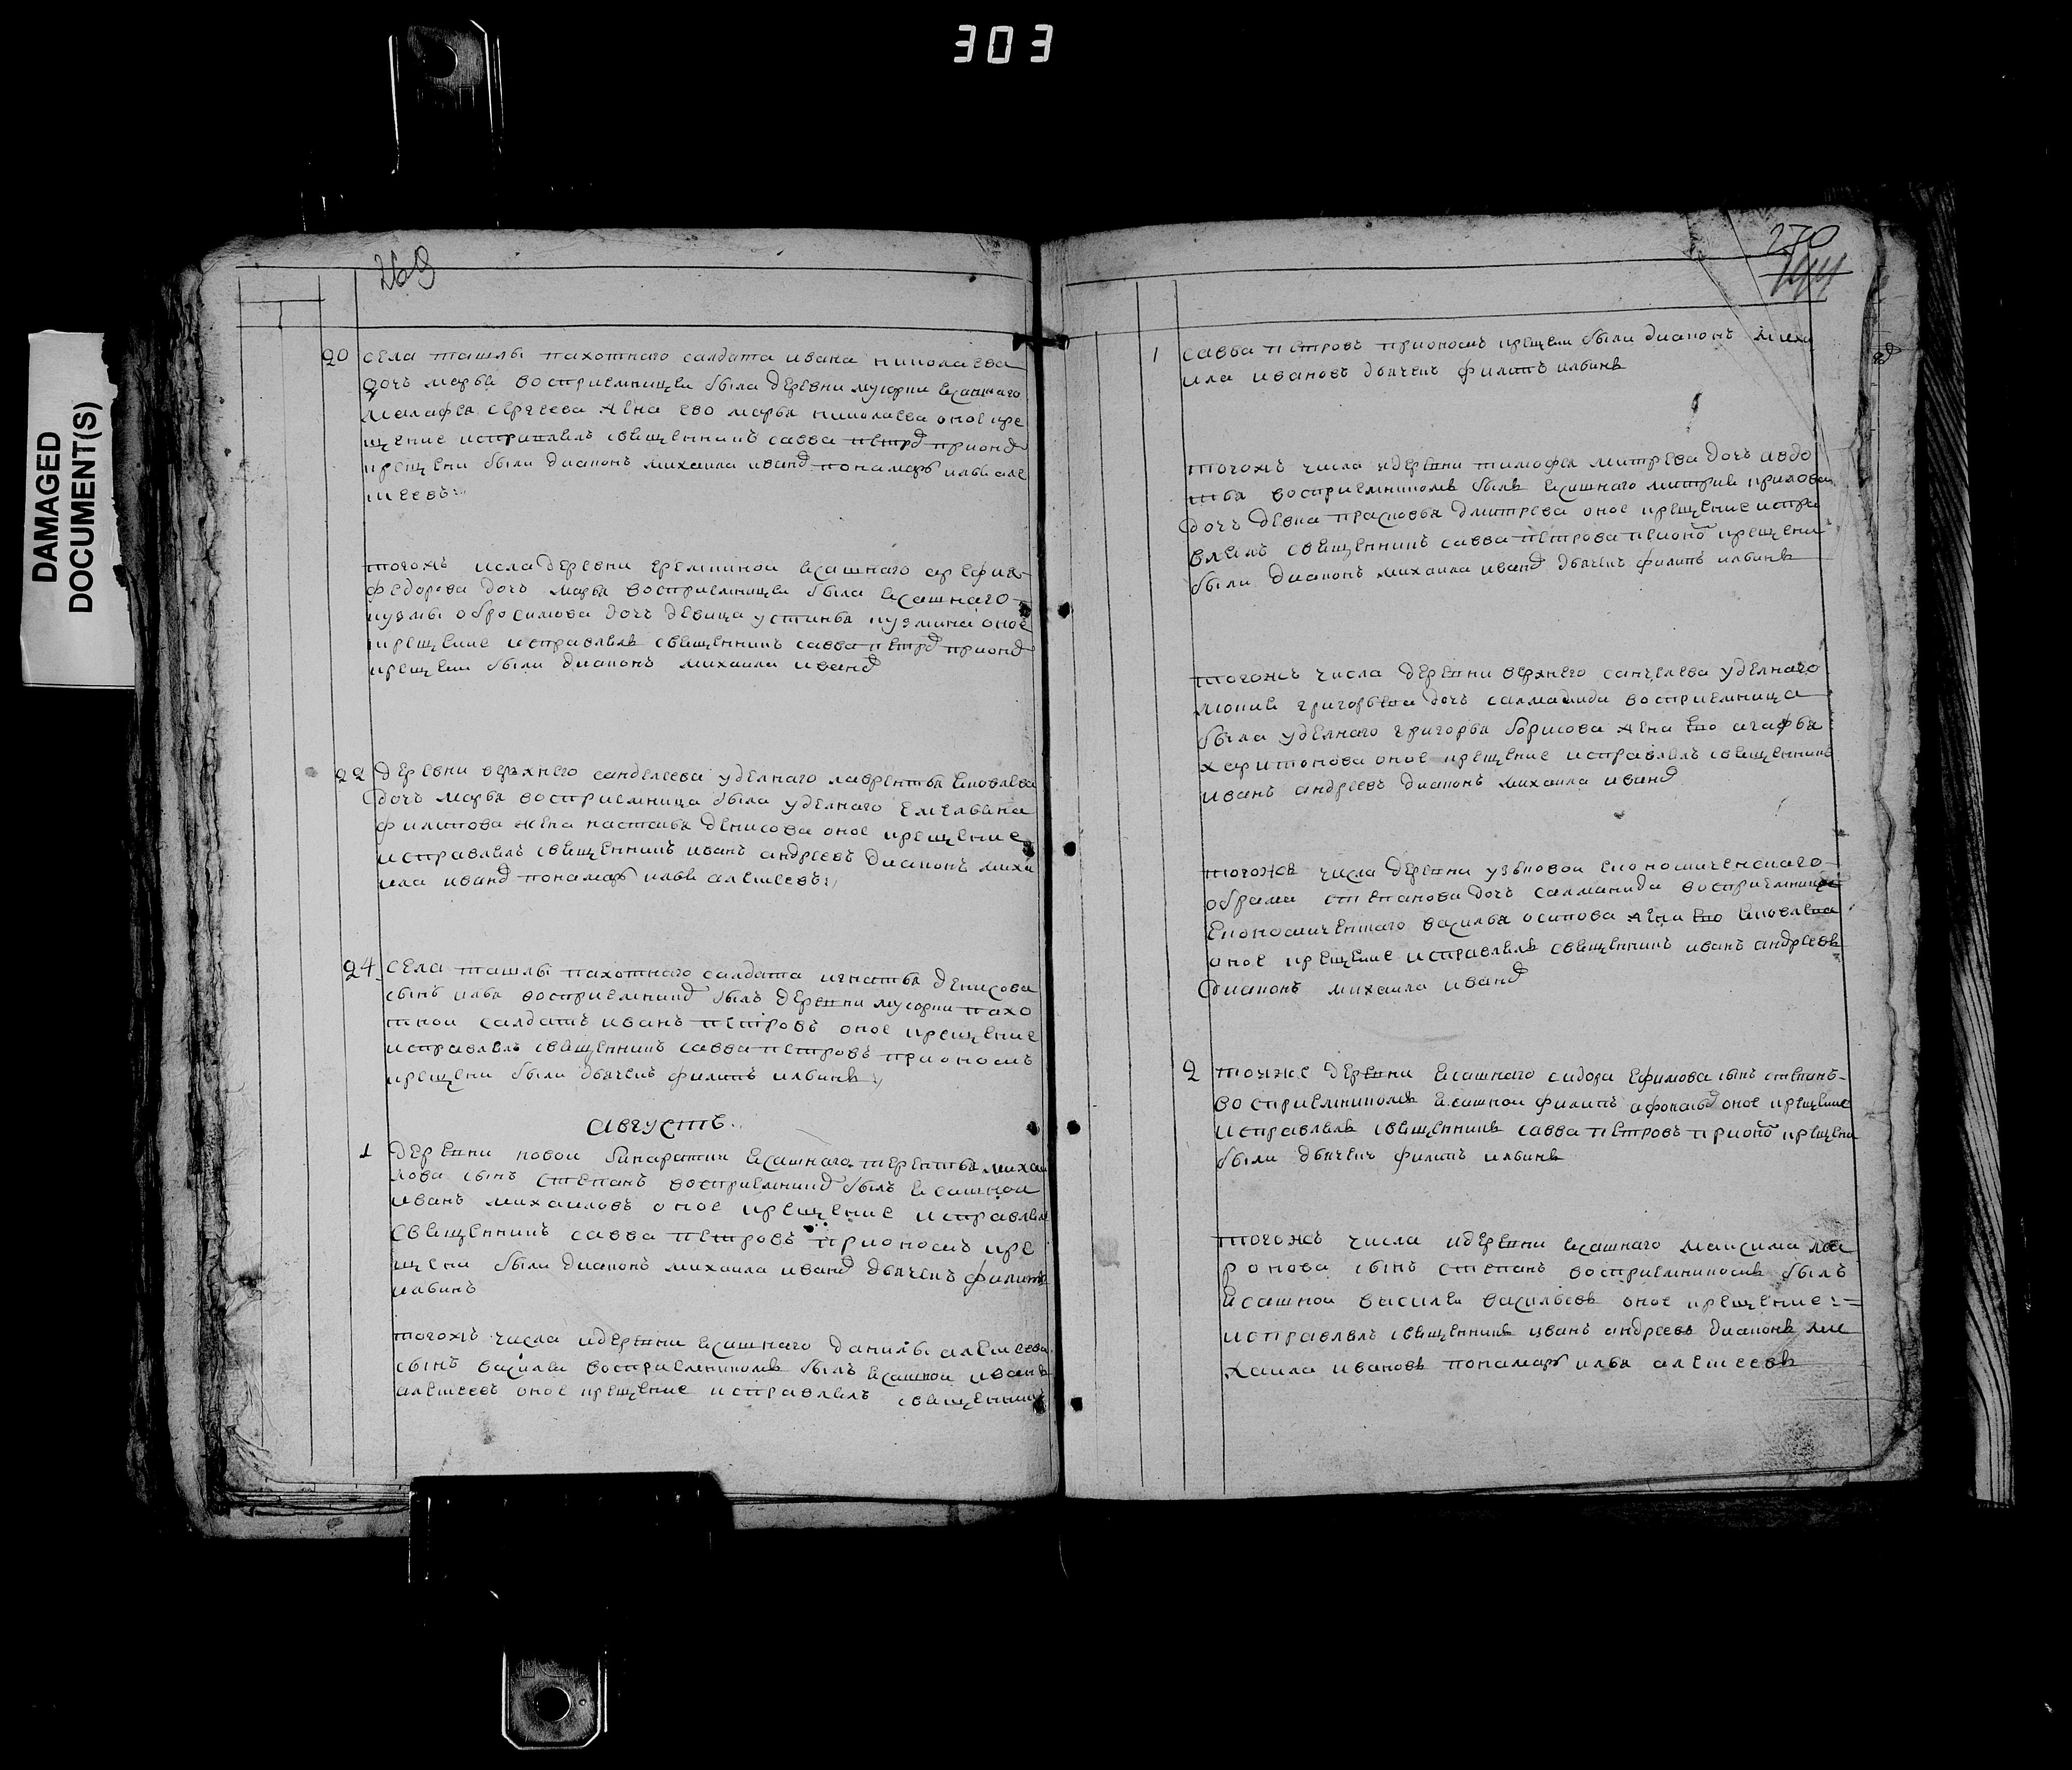 303
DAMAGED
DOCUMENT(S)
269
20 села ташлы пахотнаго салдата ивана николаева
дочь марѳа восприемницеи была деревни мусорки ясашнаго
малафея сергеева жена ево марѳа николаева оное кре
щение исправлялъ священникъ савва петрд прионд
крещени были диаконъ михаила иванд пономарь илья але
ѯеевъ
тогожъ исла деревни еремкиной ясашнаго арефия
федорова дочь марѳа восприемницеи была ясашнаго
кузмы обросимова дочь девица устинья кузмина оное
крещение исправлялъ священникъ савва петрд прионд
крещени были диаконъ михаила иванд
22 деревни верхнего санделеева уделнаго лаврентья яковлева
дочь марѳа восприемница была уделнаго емельяна
филипова жена настасья денисова оное крещение
исправлялъ священникъ иванъ андреевъ диаконъ миха
ила иванд пономарь илья алеѯеевъ
24 села ташлы пахотнаго салдата игнатья денисова
сынъ илья восприемникд былъ деревни мусорки пахо
тной салдатъ иванъ петровъ оное крещение
исправлялъ священникъ савва петровъ прионосиъ
крещени были дьячекъ филипъ ильинъ
августъ
1 деревни новой бинаратки ясашнаго терентья михаи
лова сынъ степанъ восприемникд былъ ясашной
иванъ михаиловъ оное крещение исправлялъ
священникъ савва петровъ прионосиъ кре
щени были диаконъ михаила иванд дьячекъ филипъ
ильинъ
тогожъ числа идеревни ясашнаго данилы алеѯеева
сынъ василеи восприемникомъ былъ ясашной иванъ
алеѯеевъ оное крещение исправлялъ священникъ
270
1 савва петровъ прионосиъ крещени были диаконъ миха
ила ивановъ дьячекъ филипъ ильинъ
тогожъ числа идеревни тимофея митрева дочь авдо
тья восприемникомъ былъ ясашнаго митрия
дочь девка прасковья дмитрева оное крещение испра
влялъ священникъ савва петрова крещени
были диаконъ михаила иванд дьячекъ филипъ ильинъ
тогожъ числа деревни верхнего санчелева уделнаго
григорьева дочь саламанида восприемница
была уделнаго григорья борисова жена ево агафья
харитонова оное крещение исправлялъ священникъ
иванъ андреевъ диаконъ михаила иванд
тогоже числа деревни узьковой економическаго
обрама степанова дочь саламанида восприемница
економическаго василья осипова жена ево яковлева
оное крещение исправлялъ священникъ иванъ андреевъ
диаконъ михаила иванд
2 тоиже деревни ясашнаго сидора ефимова сынъ степанъ
восприемникомъ ясашной филипъ афонасьд оное крещение
исправлялъ священникъ савва петровъ крещени
были дьячекъ филипъ ильинъ
тогожъ числа идеревни ясашнаго маѯима ми
ронова сынъ степанъ восприемникомъ былъ
ясашной василеи васильевъ оное крещение
исправлялъ священникъ иванъ андреевъ диаконъ ми
хаила ивановъ пономарь илья алеѯеевъ